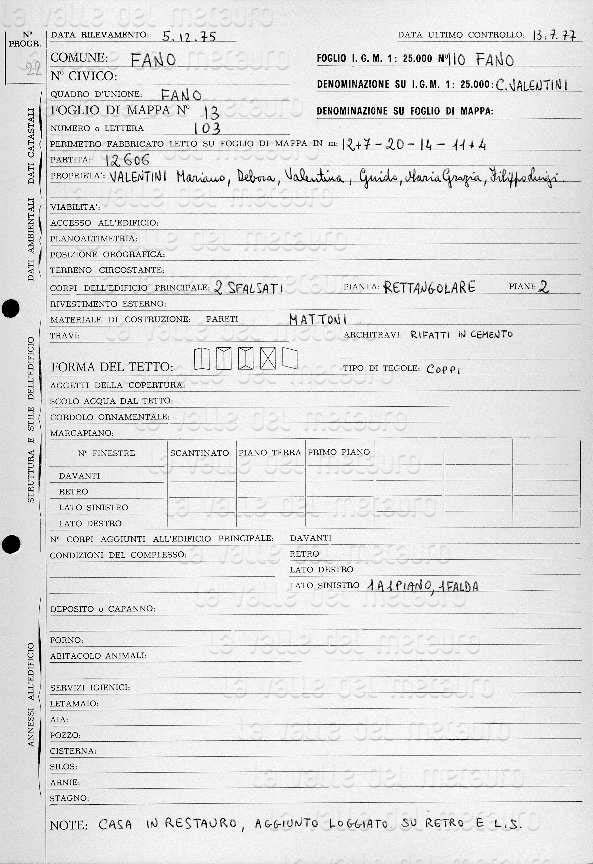 Nº PROGR. 22
DATA RILEVAMENTO: 5.12.75 DATA ULTIMO CONTROLLO: 13.7.77
COMUNE: FANO FOGLIO I.G.M. 1: 25.000 Nº 110 FANO
Nº CIVICO:
DENOMINAZIONE SU I.G.M. 1: 25.000: C. VALENTINI
QUADRO D'UNIONE: FANO
FOGLIO DI MAPPA Nº 13 DENOMINAZIONE SU FOGLIO DI MAPPA:
NUMERO o LETTERA 103
PERIMETRO FABBRICATO LETTO SU FOGLIO DI MAPPA IN m: 12+7-20-14-11+4
PARTITA: 12606
PROPRIETA': VALENTINI Mariano, Debora, Valentina, Guido, Maria Grazia, Filippo Luigi.
DATI CATASTALI
VIABILITA':
ACCESSO ALL'EDIFICIO:
PLANOALTIMETRIA:
POSIZIONE OROGRAFICA:
TERRENO CIRCOSTANTE:
DATI AMBIENTALI
CORPI DELL'EDIFICIO PRINCIPALE: 2 SFALSATI PIANTA: RETTANGOLARE PIANI: 2
RIVESTIMENTO ESTERNO:
MATERIALE DI COSTRUZIONE: PARETI MATTONI
TRAVI: ARCHITRAVI RIFATTI IN CEMENTO
FORMA DEL TETTO: TIPO DI TEGOLE: COPPI
AGGETTI DELLA COPERTURA:
SCOLO ACQUA DAL TETTO:
CORDOLO ORNAMENTALE:
MARCAPIANO:
Nº FINESTRE SCANTINATO PIANO TERRA PRIMO PIANO
DAVANTI
RETRO
LATO SINISTRO
LATO DESTRO
STRUTTURA E STILE DELL'EDIFICIO
Nº CORPI AGGIUNTI ALL'EDIFICIO PRINCIPALE: DAVANTI
CONDIZIONI DEL COMPLESSO: RETRO
LATO DESTRO
LATO SINISTRO 1 A 1 PIANO, 1 FALDA
DEPOSITO o CAPANNO:
FORNO:
ABITACOLO ANIMALI:
SERVIZI IGIENICI:
LETAMAIO:
AIA:
POZZO:
CISTERNA:
SILOS:
ARNIE:
STAGNO:
ANNESSI ALL'EDIFICIO
NOTE: CASA IN RESTAURO, AGGIUNTO LOGGIATO SU RETRO E L.S.
la valle del metauro